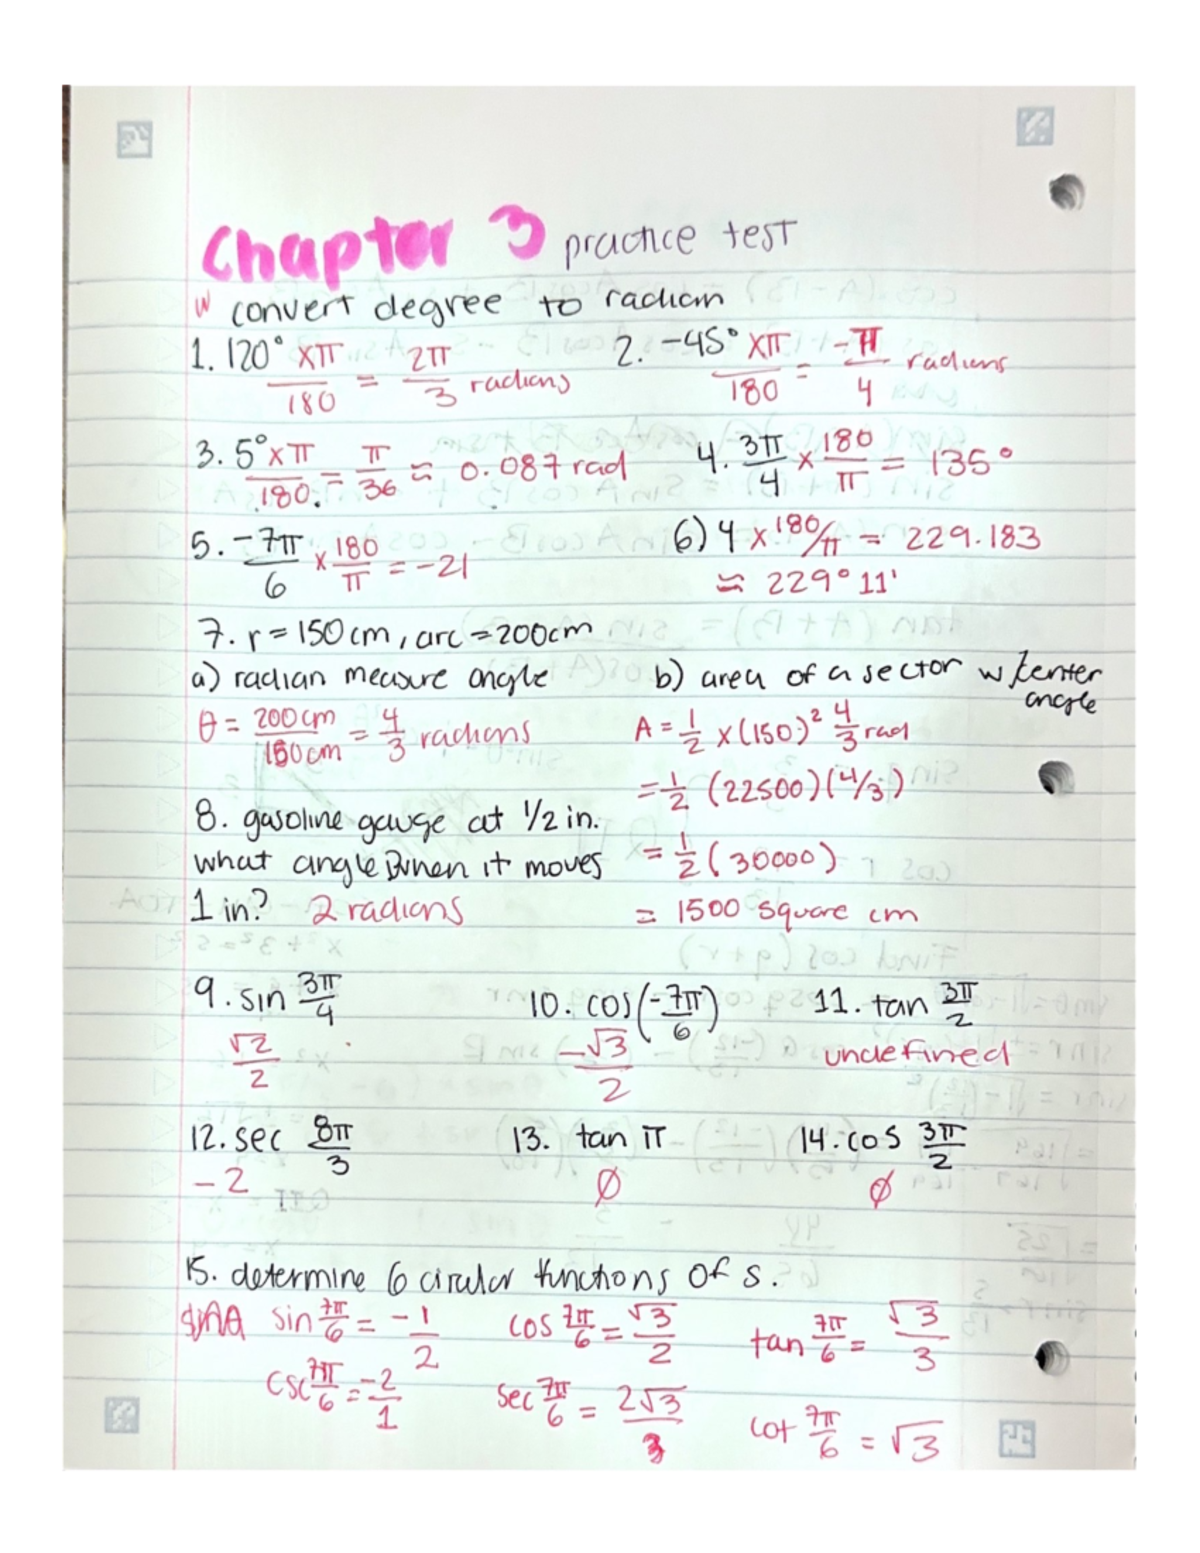 Chapter 3 practice test
w convert degree to radian
1. 120° xπ/180 = 2π/3 radians
2. -45° xπ/180 = -π/4 radians
3. 5° x π/180. = π/36 ≈ 0.087 rad
4. 3π/4 x 180/π = 135°
5. -7π/6 x 180/π = -21
6) 4 x 180/π = 229.183
≈ 229° 11'
7. r = 150cm, arc = 200cm
a) radian measure angle
θ = 200cm/150cm = 4/3 radians
b) area of a sector w/center angle
A = 1/2 x (150)² 4/3 rad
= 1/2 (22500)(4/3)
= 1/2 (30000)
= 1500 square cm
8. gasoline gauge at 1/2 in.
what angle when it moves
1 in? 2 radians
9. sin 3π/4
√2/2
10. cos(-7π/6)
-√3/2
11. tan 3π/2
undefined
12. sec 8π/3
-2
13. tan π
∅
14. cos 3π/2
∅
15. determine 6 circular functions of s.
sin 7π/6 = -1/2
cos 7π/6 = √3/2
tan 7π/6 = √3/3
csc 7π/6 = -2/1
sec 7π/6 = 2√3/3
cot 7π/6 = √3